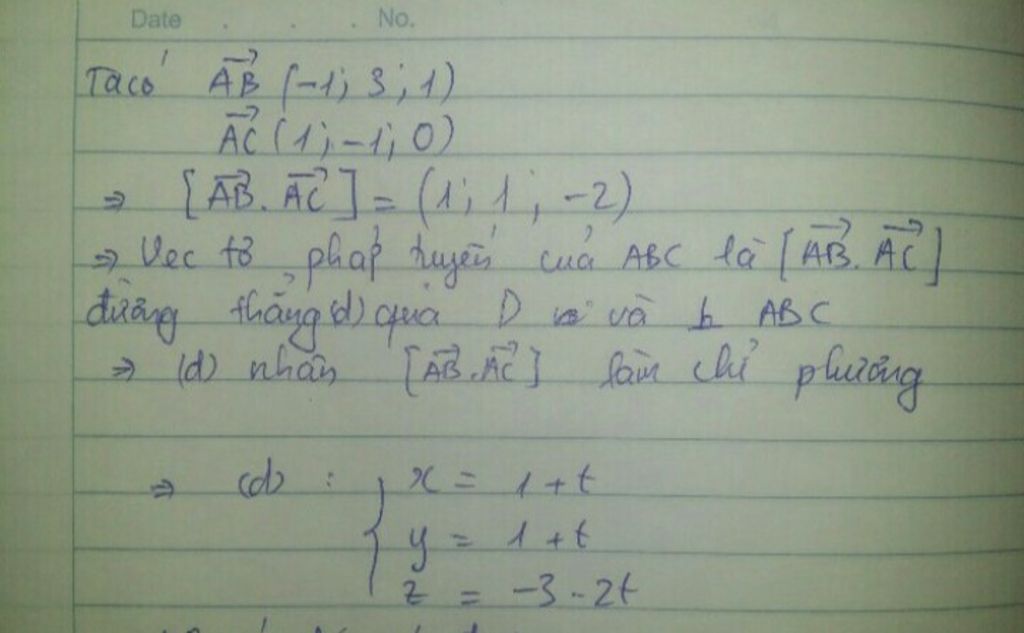 Date . . . No.
Ta có AB→ (-1; 3; 1)
AC→ (1; -1; 0)
⇒ [AB→. AC→] = (1; 1; -2)
⇒ Vec tơ pháp tuyến của ABC là [AB→. AC→]
đường thẳng (d) qua D và ⊥ ABC
⇒ (d) nhân [AB→. AC→] làm chỉ phương
⇒ (d) : { x = 1 + t
y = 1 + t
z = -3 - 2t